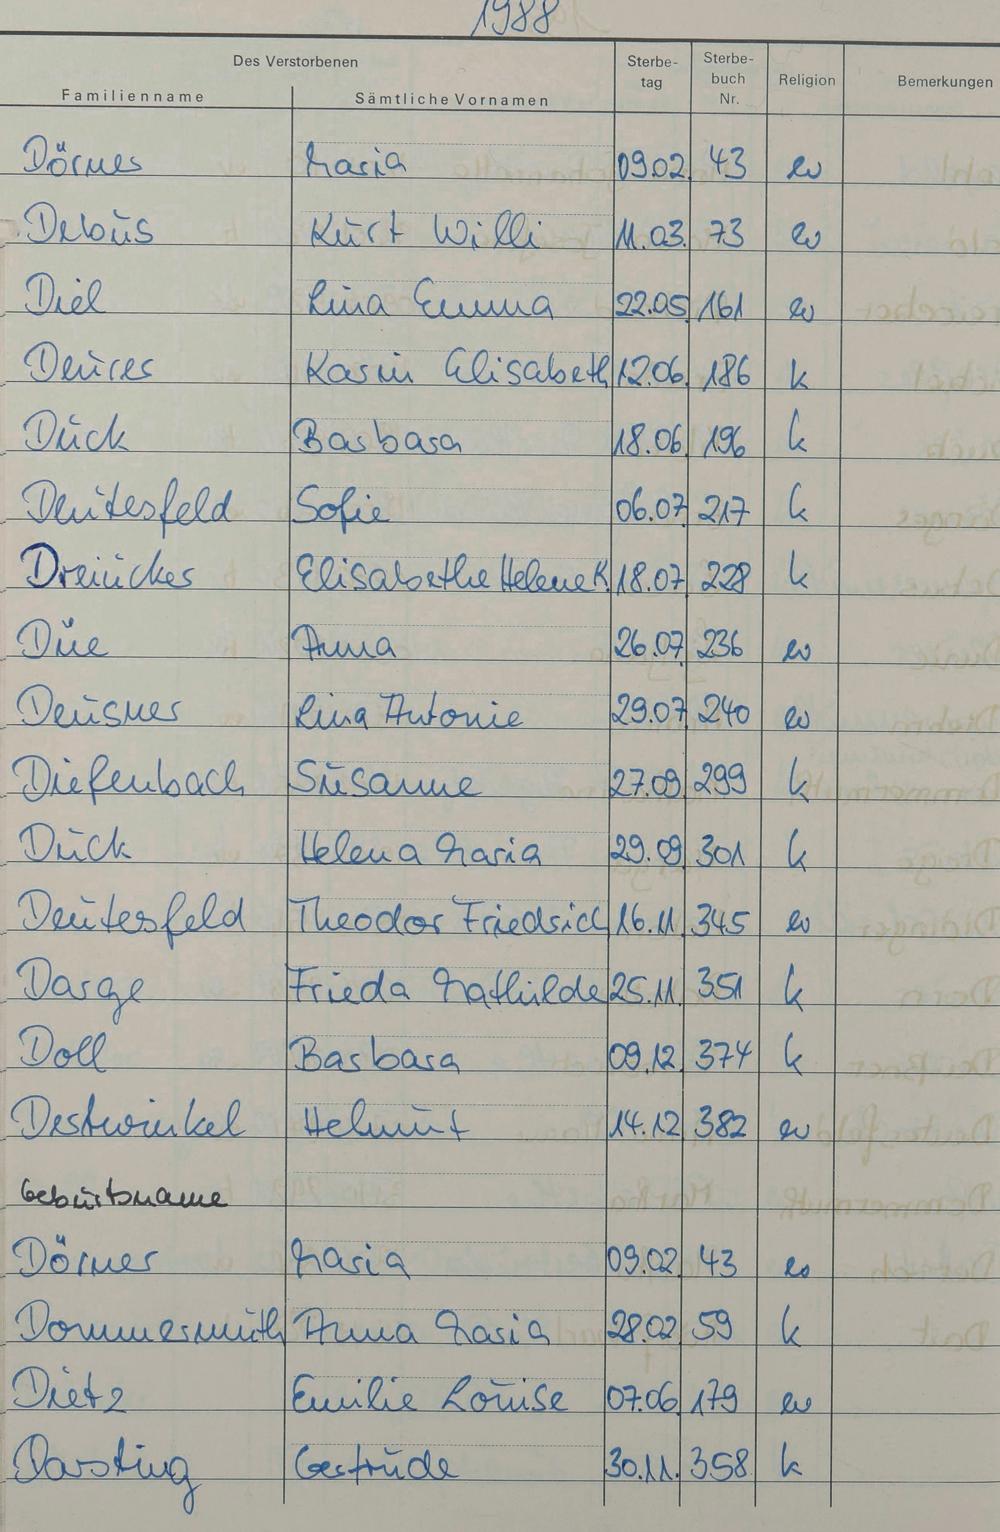 1988
Des Verstorbenen
Familienname Sämtliche Vornamen Sterbe-tag Sterbe-buch Nr. Religion Bemerkungen
Dörner Maria 09.02. 43 ev
Debus Kurt Willi 11.03. 73 ev
Diel Lina Emma 22.05 161 ev
Deurer Karin Elisabeth 12.06. 186 k
Dück Barbara 18.06. 196 k
Deutesfeld Sofie 06.07 217 k
Dreiücker Elisabethe Helene K. 18.07 228 k
Düe Anna 26.07 236 ev
Deusner Lina Antonie 29.07 240 ev
Diefenbach Susanne 27.09 299 k
Dück Helena Maria 29.09 301 k
Deutesfeld Theodor Friedrich 16.11. 345 ev
Darge Frieda Mathilde 25.11. 351 k
Doll Barbara 09.12. 374 k
Destwinkel Helmut 14.12 382 ev
Geburtsname
Dörner Maria 09.02. 43 ev
Dommermuth Anna Maria 28.02 59 k
Dietz Emilie Louise 07.06. 179 ev
Darting Gertrude 30.11. 358 k